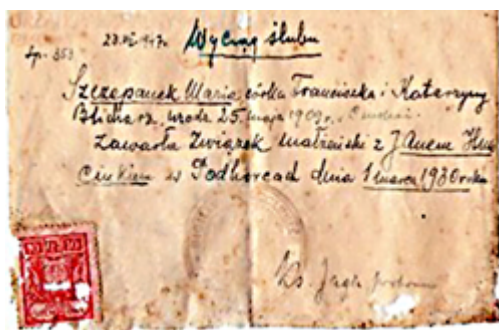 Lp. 353 23.VI.947. Wyciąg ślubu
Szczepanek Maria córka Franciszka i Katarzyny
Blicharz, urodz. 25. maja 1909 r.
zawarła związek małżeński z Janem
w Podhorcach dnia 1 marca 1930 roku
Ks.